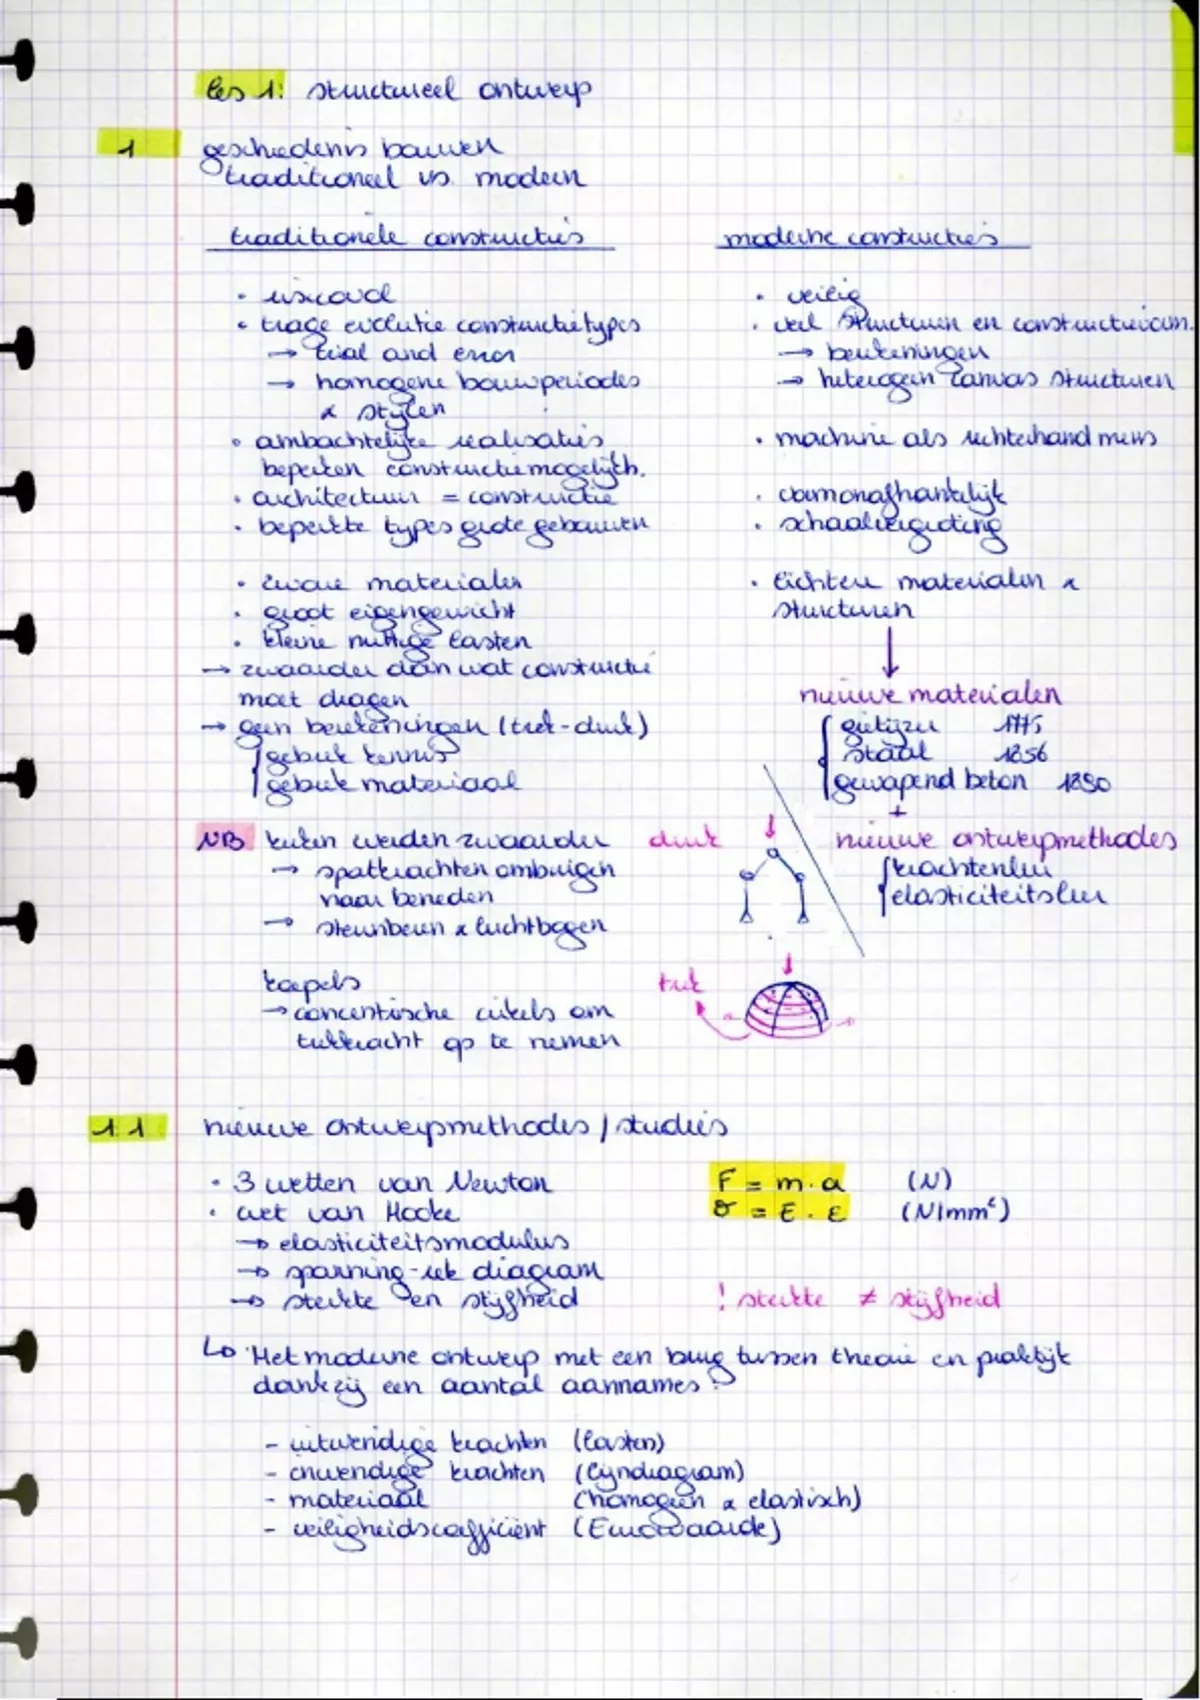 les 1: structureel ontwerp
1 geschiedenis bouwen
traditioneel vs. modern
traditionele constructies
moderne constructies
• risicovol
• trage evolutie constructietypes
→ trial and error
→ homogene bouwperiodes
& stijlen
• ambachtelijke realisaties
beperken constructiemogelijkh.
• architectuur = constructie
• beperkte types grote gebouwen
• zware materialen
• groot eigengewicht
• kleine nuttige lasten
→ zwaarder dan wat constructie
moet dragen
→ geen berekeningen (trek-druk)
gebrek kennis
gebrek materiaal
• veilig
• veel structuren en constructievorm.
→ berekeningen
→ heterogeen canvas structuren
• machine als rechterhand mens
• vormonafhankelijk
• schaalvergroting
• lichtere materialen &
structuren
nieuwe materialen
gietijzer 1775
staal 1856
gewapend beton 1890
+
nieuwe ontwerpmethodes
krachtenleer
elasticiteitsleer
NB kerken werden zwaarder
→ spatkrachten ombuigen
naar beneden
→ steunberen & luchtbogen
druk
koepels
→ concentrische cirkels om
trekkracht op te nemen
trek
1.1 nieuwe ontwerpmethodes / studies
• 3 wetten van Newton F = m.a (N)
• wet van Hooke σ = E.ε (N/mm²)
→ elasticiteitsmodulus
→ spanning-rek diagram
→ sterkte en stijfheid ! sterkte ≠ stijfheid
↳ Het moderne ontwerp met een brug tussen theorie en praktijk
dankzij een aantal aannames:
- uitwendige krachten (lasten)
- inwendige krachten (lijndiagram)
- materiaal (homogeen & elastisch)
- veiligheidscoëfficiënt (Eurowaarde)